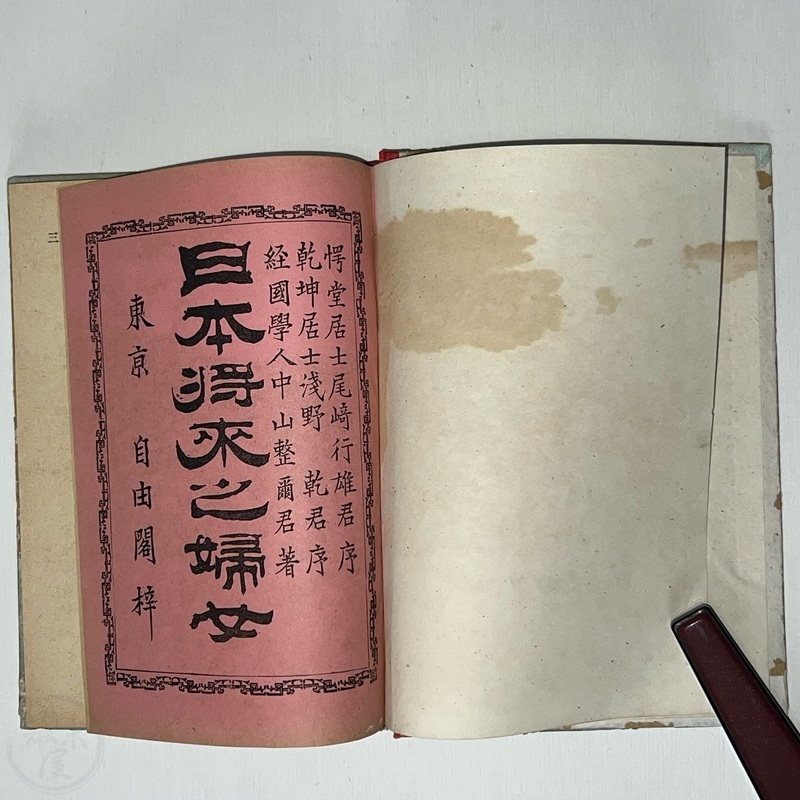 愕堂居士尾﨑行雄君序
乾坤居士淺野　乾君序
経國學人中山整爾君著
日本将来之婦女
東京　自由閣梓
三